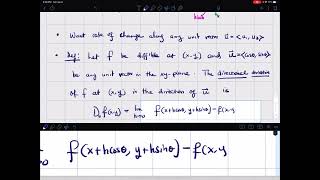 • Want rate of change along any unit vector u = <u₁, u₂>
• Def: Let f be diff'ble at (x,y) and u = <cosθ, sinθ>
be any unit vector in the xy-plane. The directional derivative
of f at (x,y) in the direction of u is
Dᵤf(x,y) = lim h→0 f(x+hcosθ, y+hsinθ) - f(x,y
h→0 f(x+hcosθ, y+hsinθ) - f(x,y